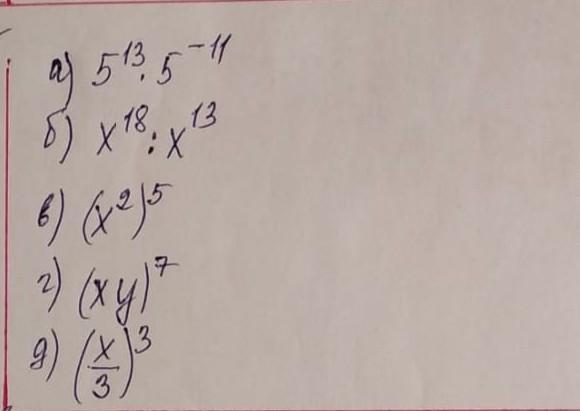 а) 5¹³ · 5⁻¹¹
б) x¹⁸ : x¹³
в) (x²)⁵
г) (xy)⁷
д) (x/3)³